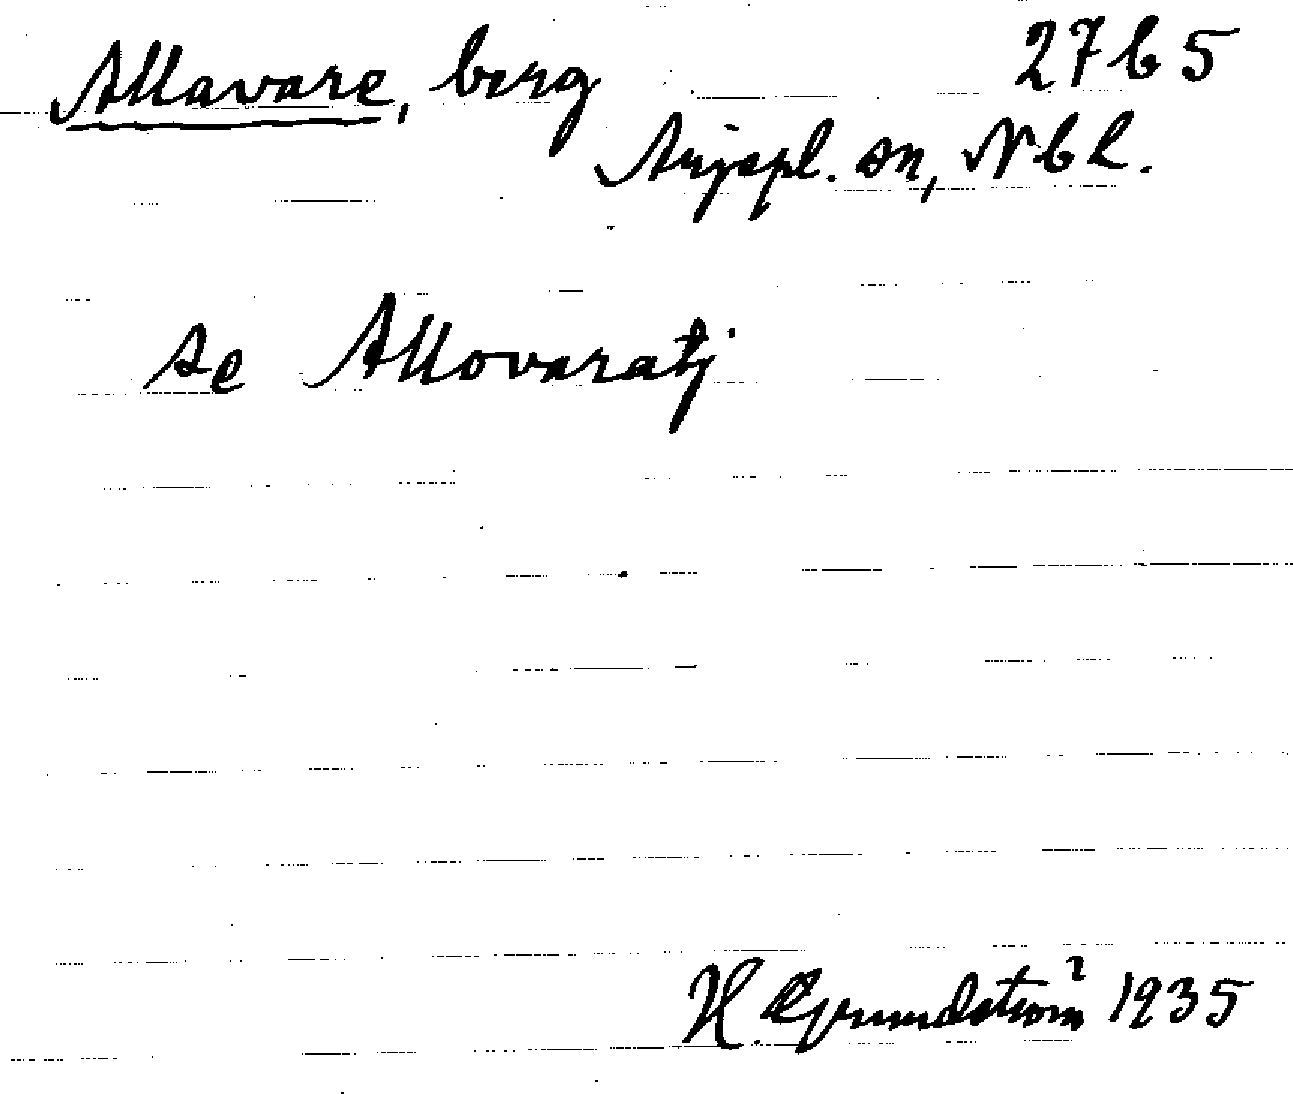 Allavare, berg 27 b 5
Arjepl. sn, Nbl.
se Allovaratj
H. Grundström 1935